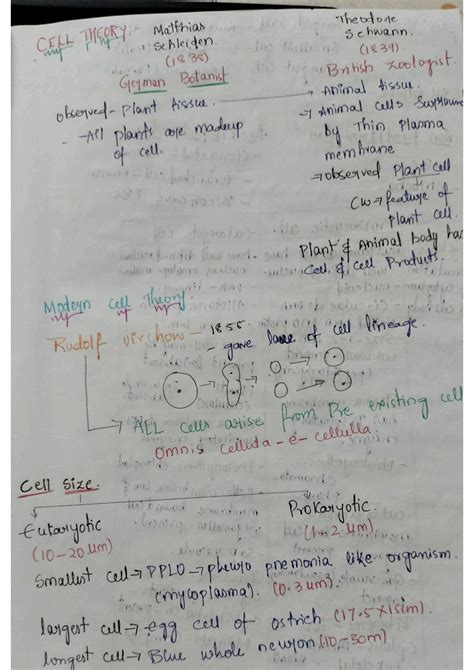 CELL THEORY:- Matthias Schleiden.
(1838)
German Botanist
observed - Plant tissue.
- All plants are madeup of cell.
Theodore Schwann.
(1839)
British zoologist.
→ Animal tissue.
→ Animal cells
by Thin Plasma membrane
→ observed Plant cell
CW → feature of Plant cell.
Plant & Animal body ha
Cell & cell Products.
Modern Cell Theory
Rudolf virchow - 1855
- gave law of cell lineage.
→ ALL Cells arise from Pre existing cell
Omnis cellula-e-cellulla.
Cell Size:
Eukaryotic
(10-20 um)
Prokaryotic
(1-2 um)
Smallest cell → PPLO → pleuro pnemonia like organism.
(mycoplasma). (0.3 um).
largest cell → egg cell of ostrich (17.5 X 15cm).
longest cell → Blue whole neuron (10-30m)